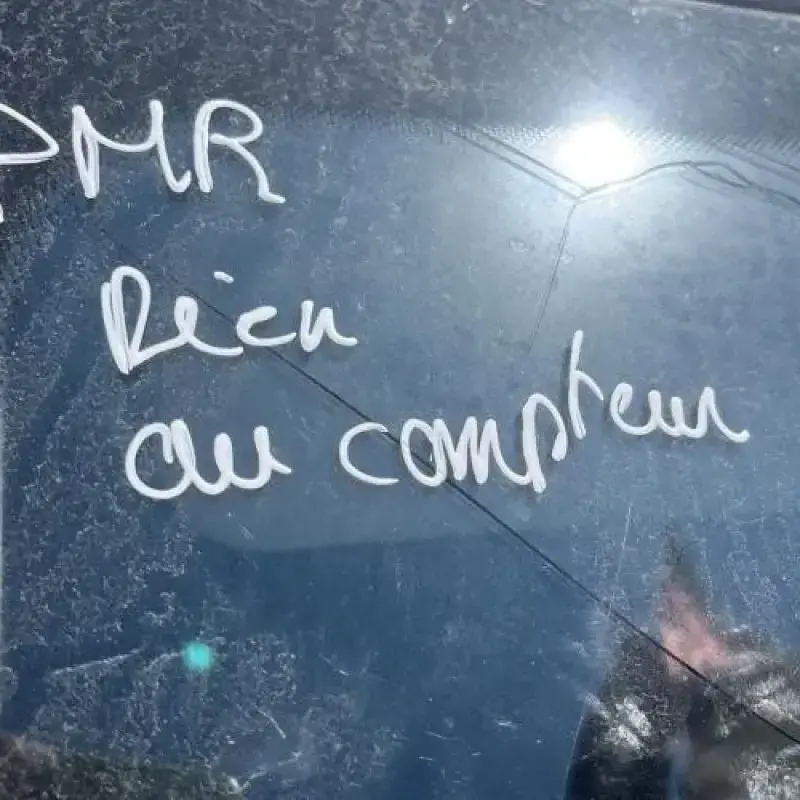 PMR
Rien
au compteur